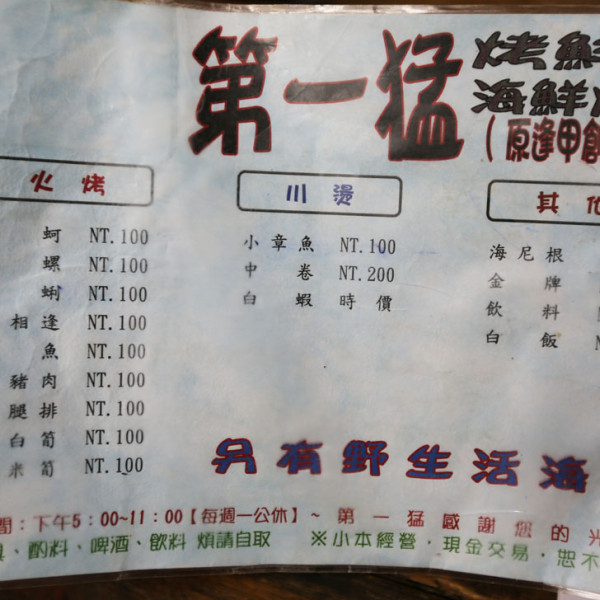 第一猛
烤鮮
海鮮
(原逢甲創
火烤
蚵 NT.100
螺 NT.100
蜊 NT.100
相逢 NT.100
魚 NT.100
豬肉 NT.100
腿排 NT.100
白筍 NT.100
米筍 NT.100
川燙
小章魚 NT.100
中卷 NT.200
白蝦 時價
其他
海尼根
金牌
飲料
白飯
另有野生活海
間：下午5：00~11：00【每週一公休】~ 第一猛感謝您的光
、酌料、啤酒、飲料 煩請自取 ※小本經營，現金交易，恕不